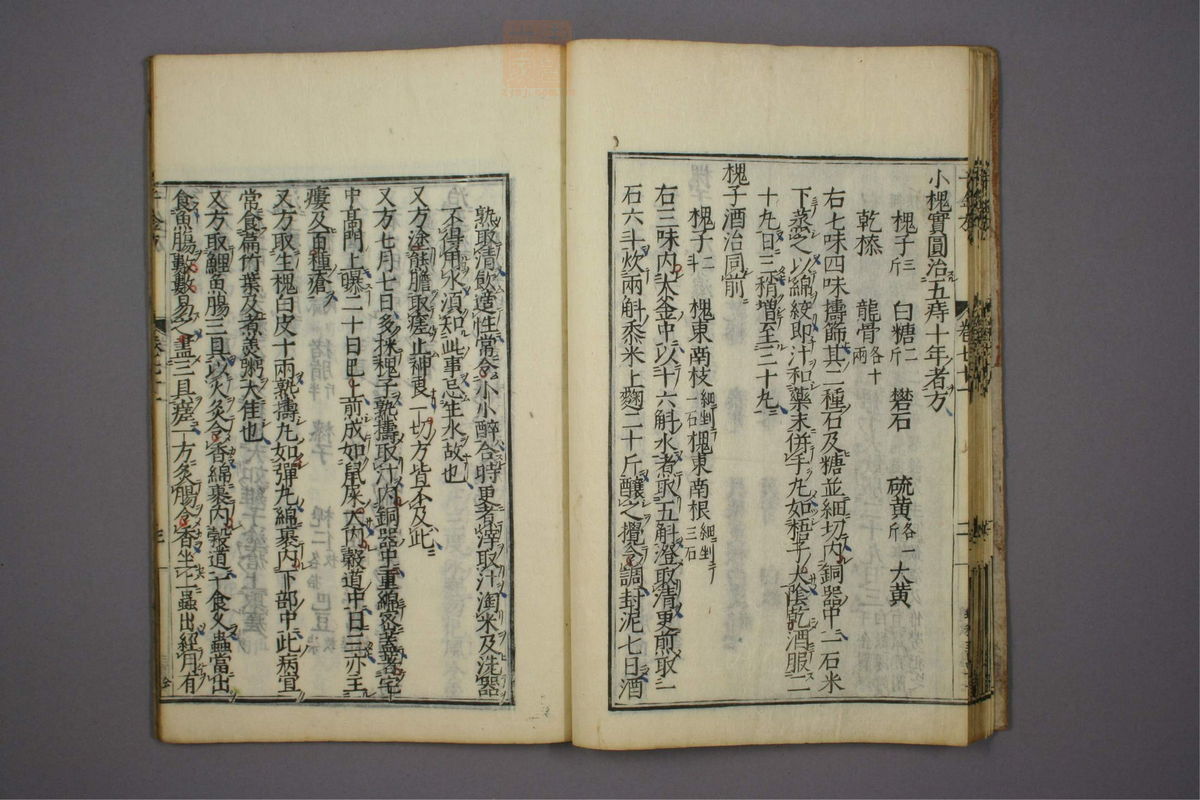 小槐實圓治五痔十年者方
槐子三斤 白糖二斤 礬石 硫黄各一斤 大黄
乾㯃 龍骨各十兩
右七味四味擣篩其二種石及糖並細切內銅器中一石米
下蒸之以綿絞卽汁和藥末併手丸如梧子大陰乾酒服二
十丸日三稍增至三十丸
槐子酒治同前
槐子二斗 槐東南枝細剉一石 槐東南根細剉三石
右三味內大釜中以十六斛水煮取五斛澄取清更煎取一
石六斗炊兩斛黍米上麴二十斤釀之攪令調封泥七日酒
熟取清飲適性常令小小醉合時更煮滓取汁淘米及洗器
不得用水須知此事忌生水故也
又方塗熊膽取瘥止神良一切方皆不及此
又方七月七日多採槐子熟擣取汁內銅器中重綿密蓋著宅
中高門上曝二十日巳上煎成如鼠屎大內穀道中日三亦主
瘻及百種瘡
又方取生槐白皮十兩熟擣丸如彈丸綿裹內下部中此病宜
常食萹竹葉及煮羮粥大佳也
又方取鯉魚腸三具以火炙令香綿裹內穀道一食久蟲當出
食魚腸數數易之盡三具瘥一方炙腸令香坐上蟲出經用有